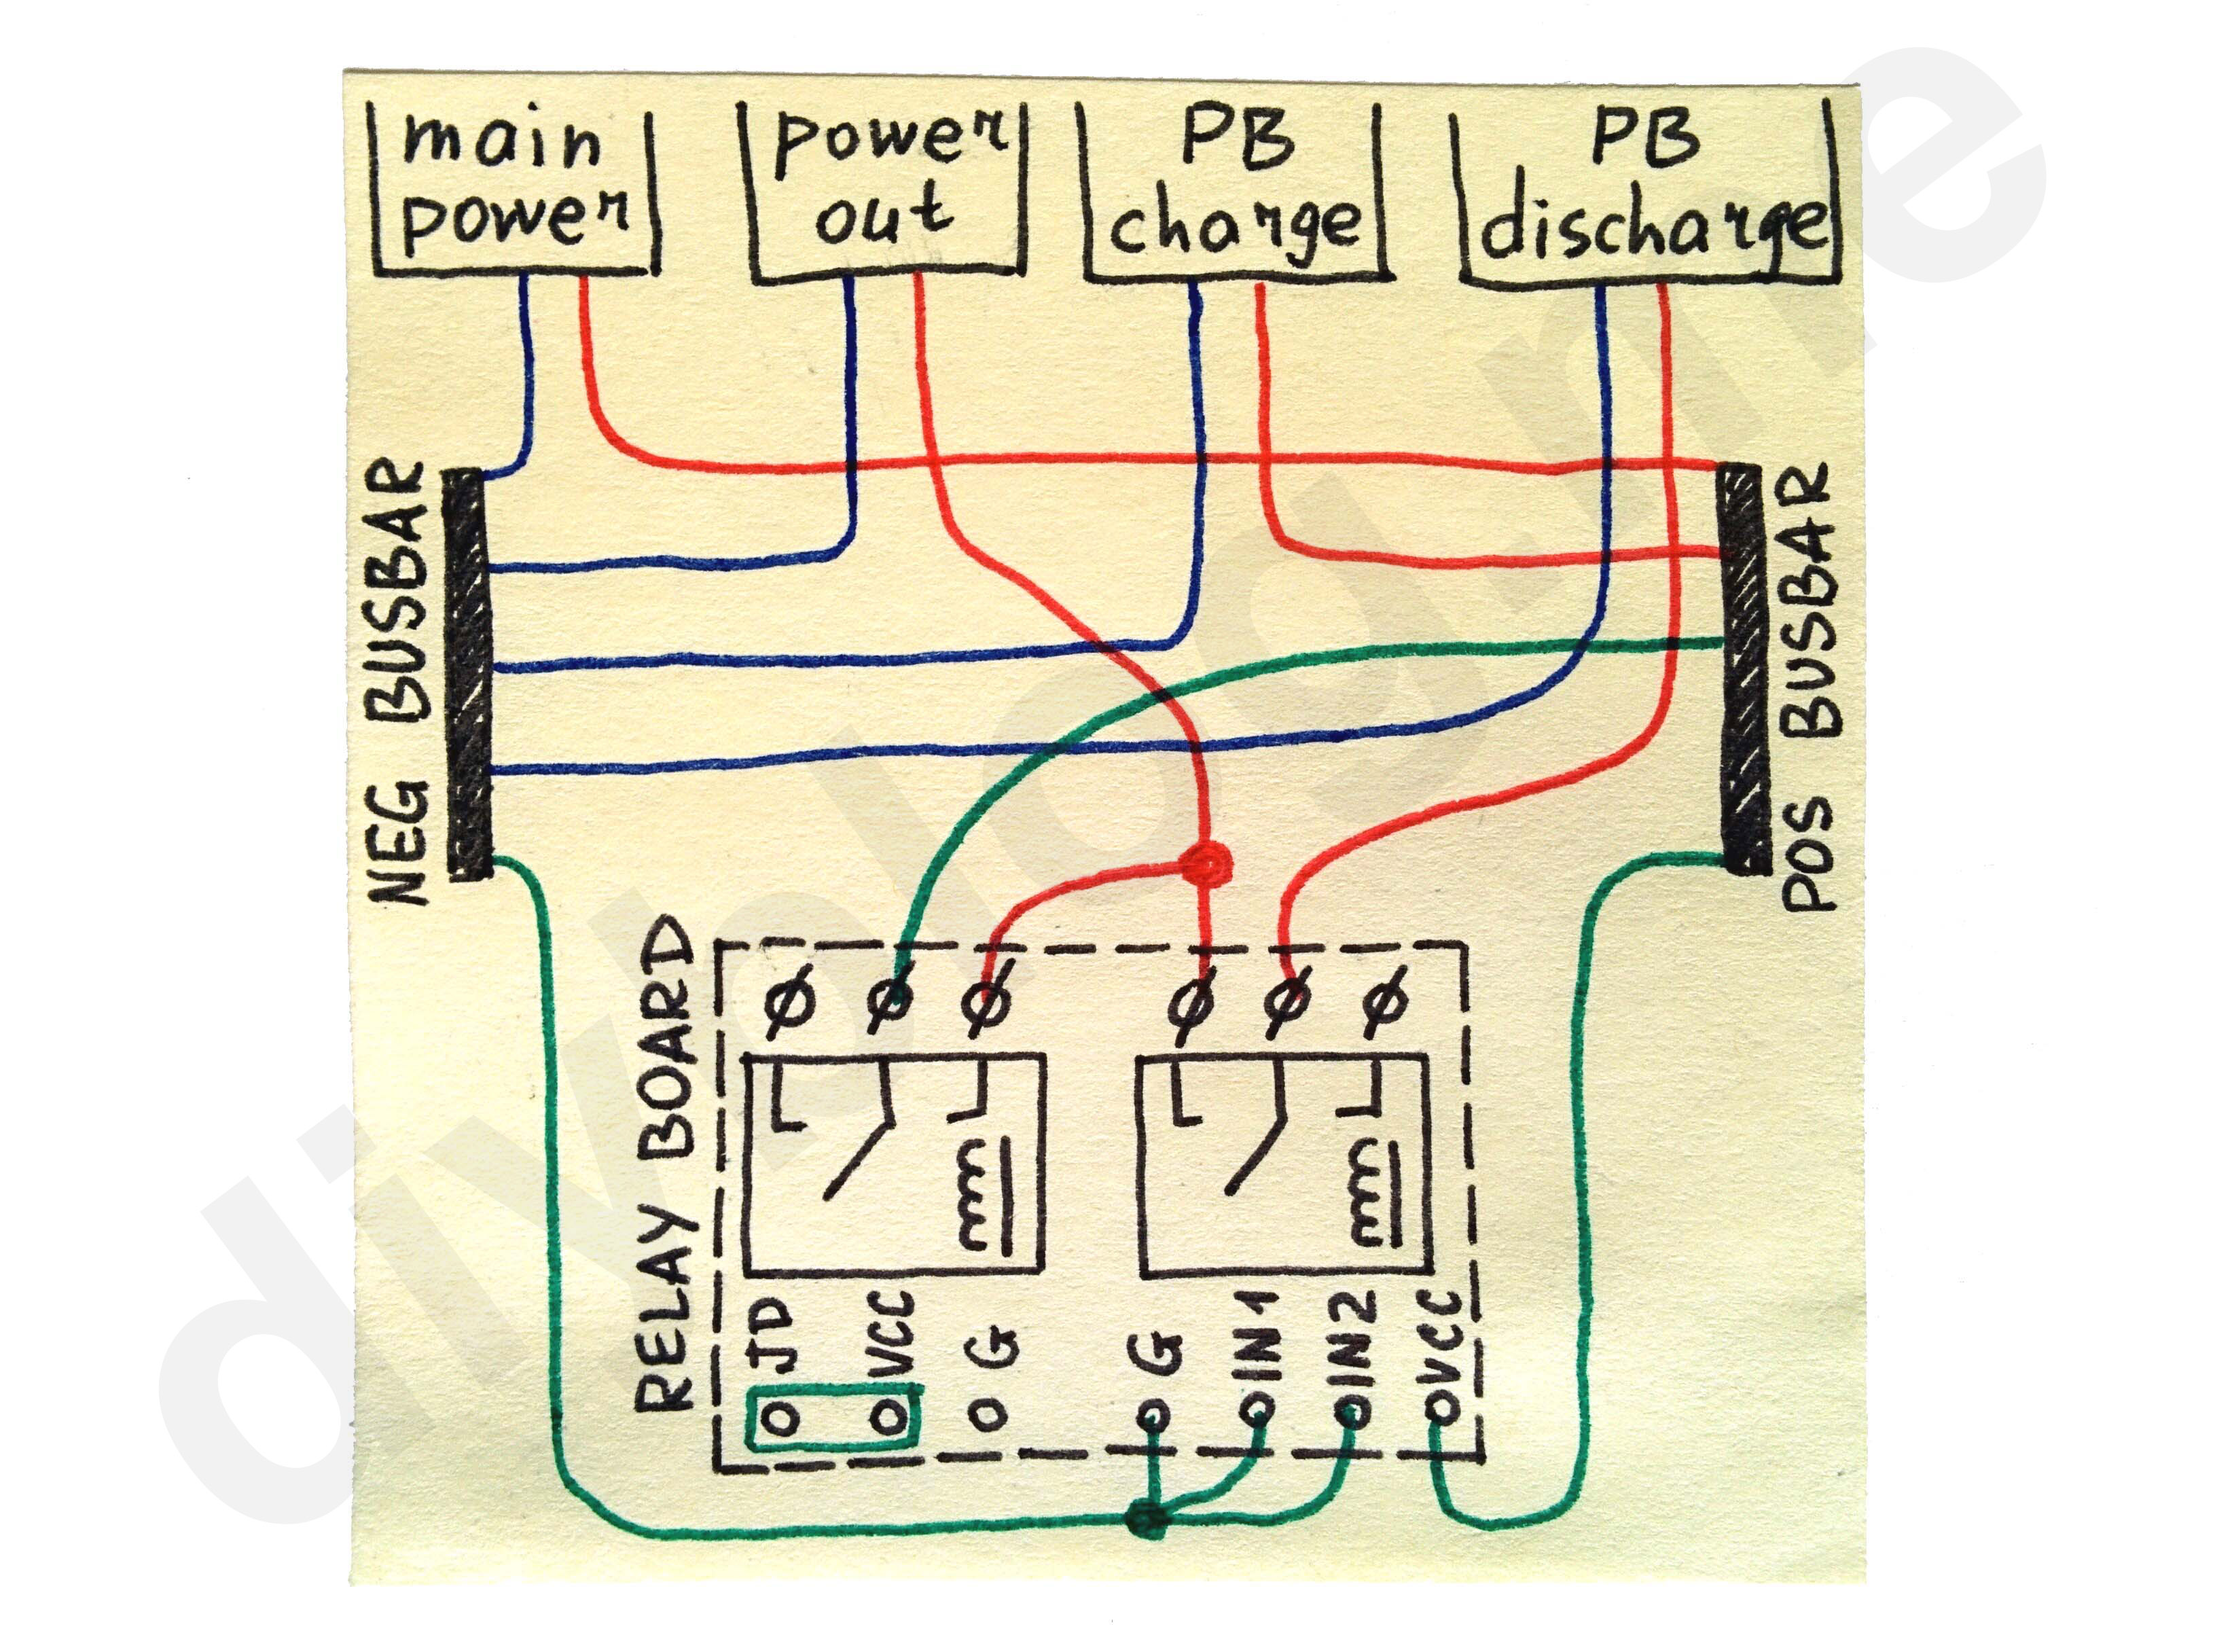 main
power
power
out
PB
charge
PB
discharge
NEG BUSBAR
POS BUSBAR
RELAY BOARD
JD
VCC
G
G
IN1
IN2
VCC
diyblog.me